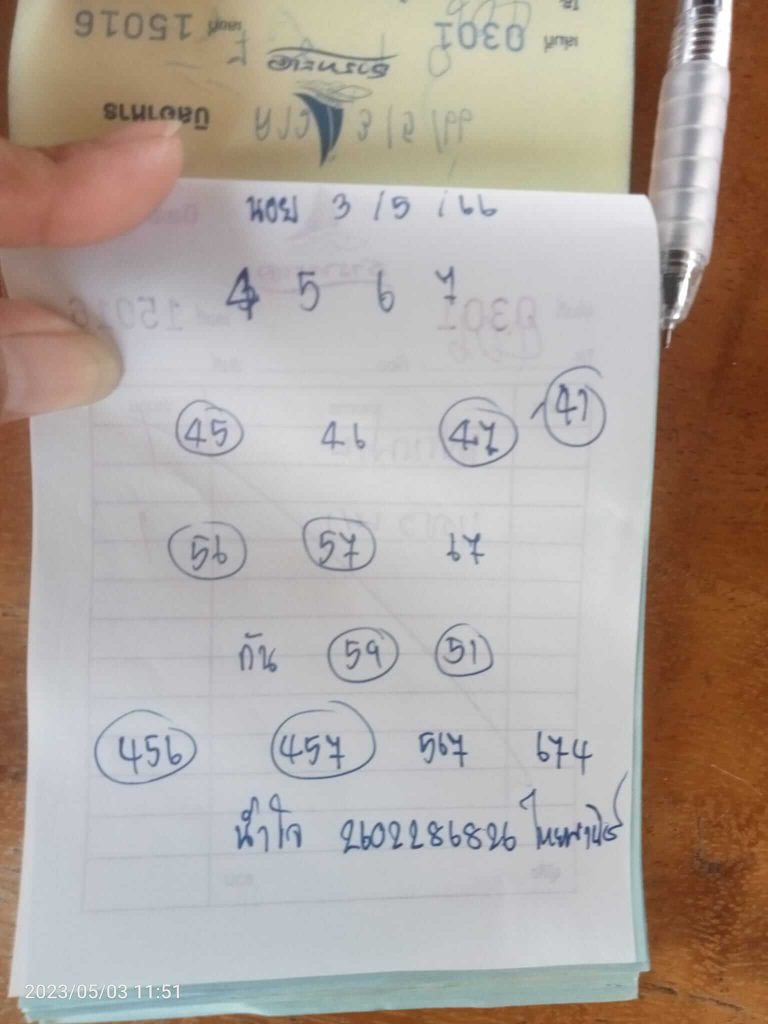 เล่มที่ 0301 เลขที่ 15016
บิลอาหาร
นอย 3 / 5 / 66
4 5 6 7
45 46 47 41
56 57 67
กัน 59 51
456 457 567 674
น้ำใจ 2602286826 ไทยพานิช
2023/05/03 11:51